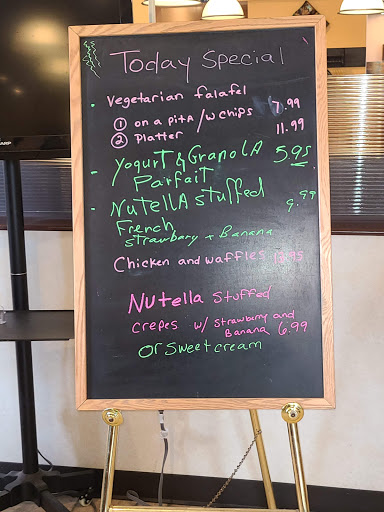 Today Special
- Vegetarian falafel
① on a pita /w chips 7.99
② Platter 11.99
- Yogurt & Granola 5.95
Parfait
- Nutella stuffed 9.99
French
strawbary + Banana
Chicken and waffles
Nutella stuffed
crepes w/ strawberry and
Banana 6.99
or sweet cream
SHARP